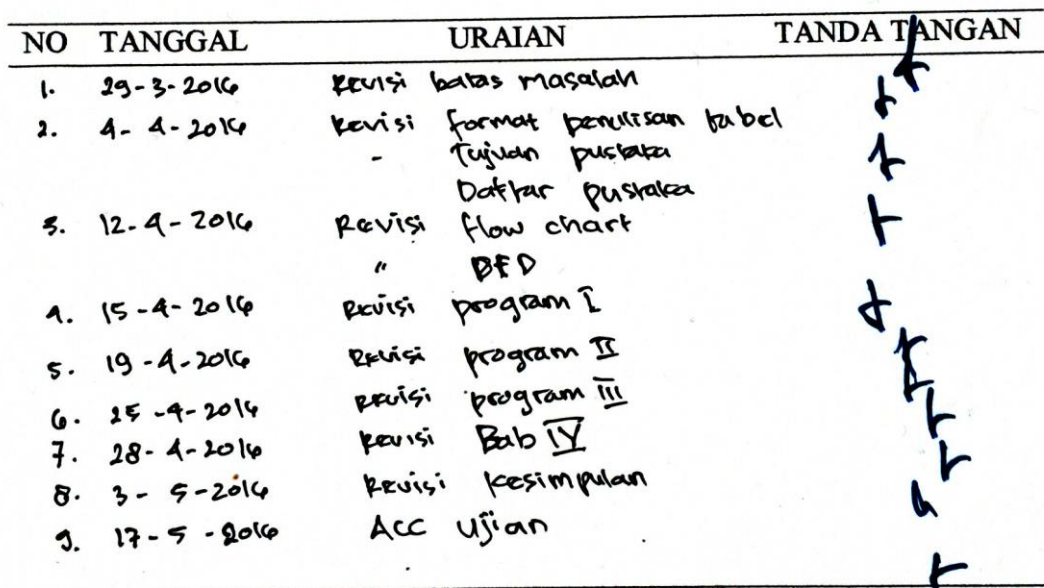 NO TANGGAL URAIAN TANDA TANGAN
1. 29-3-2016 Revisi batas masalah
2. 4-4-2016 Revisi format penulisan tabel
- Tujuan pustaka
Daftar pustaka
3. 12-4-2016 Revisi flow chart
" DFD
4. 15-4-2016 Revisi program I
5. 19-4-2016 Revisi program II
6. 25-4-2016 Revisi program III
7. 28-4-2016 Revisi Bab IV
8. 3-5-2016 Revisi kesimpulan
9. 17-5-2016 ACC Ujian